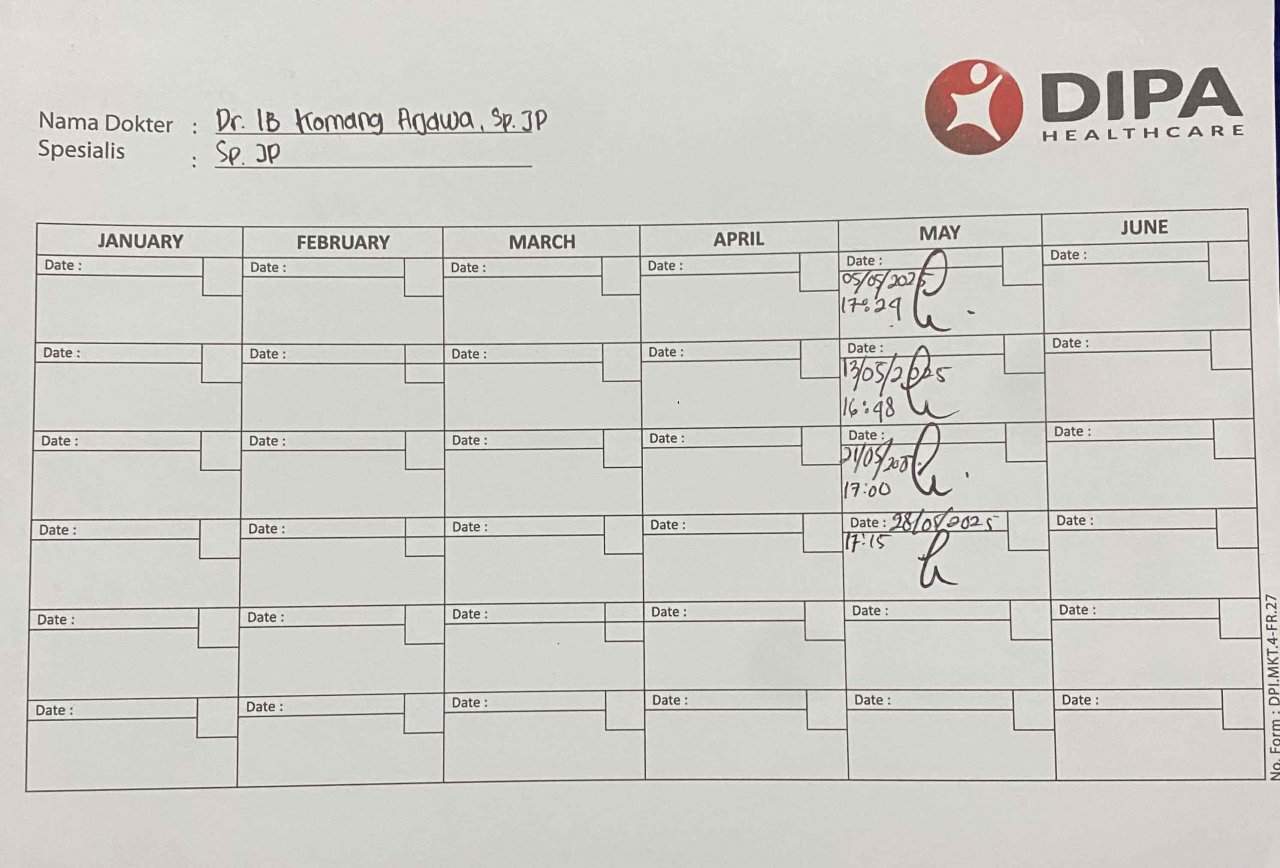 DIPA
HEALTHCARE
Nama Dokter : Dr. IB Komang Arjawa, Sp. JP
Spesialis : Sp. JP
JANUARY FEBRUARY MARCH APRIL MAY JUNE
Date : Date : Date : Date : Date : Date :
05/05/2025
17:29
Date : Date : Date : Date : Date : Date :
13/05/2025
16:48
Date : Date : Date : Date : Date : Date :
21/05/202
17:00
Date : Date : Date : Date : Date : 28/05/2025 Date :
17:15
Date : Date : Date : Date : Date : Date :
Date : Date : Date : Date : Date : Date :
No. Form : DPI.MKT.4-FR.27